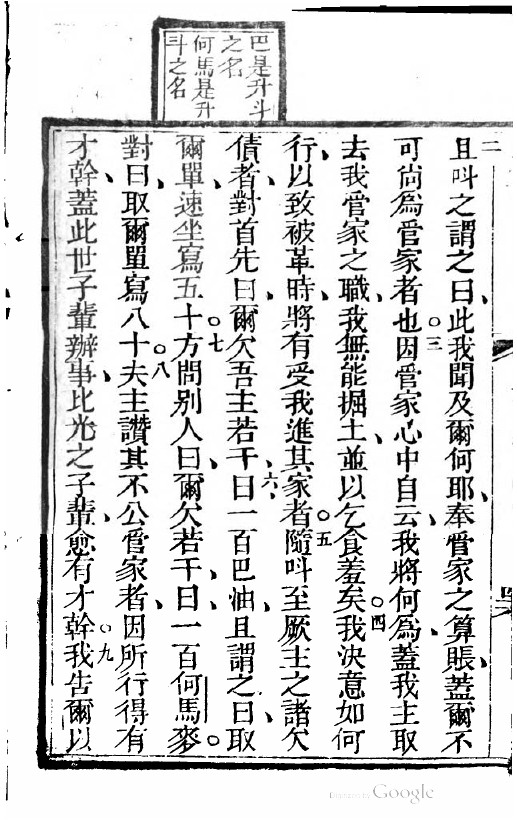 巴是升斗
之名
何馬是升
斗之名
二
且呌之謂之曰此我聞及爾何耶奉管家之算賬蓋爾不
可尙爲管家者也○三因管家心中自云我將何爲蓋我主取
去我管家之職我無能掘土並以乞食羞矣○四我決意如何
行以致被革時將有受我進其家者○五隨呌至厥主之諸欠
債者對首先曰爾欠吾主若干六曰一百巴油且謂之曰取
爾單速坐寫五十○七方問别人曰爾欠若干曰一百何馬麥○
對曰取爾單寫八十○八夫主讚其不公管家者因所行得有
才幹蓋此世子輩辦事比光之子輩愈有才幹○九我告爾以
Digitized by Google